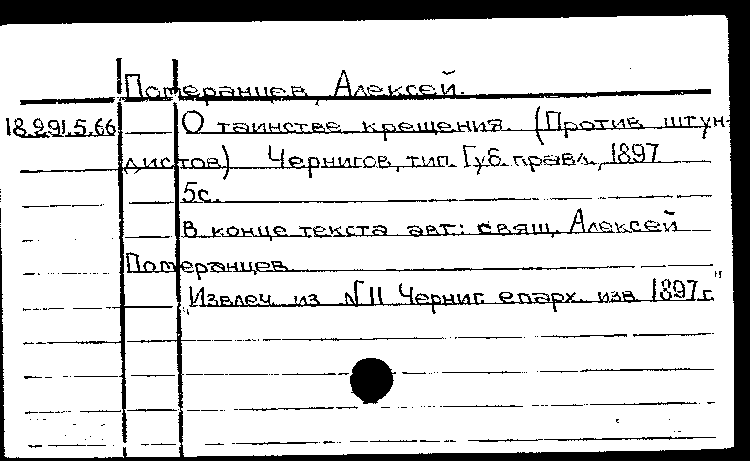 Померанцев, Алексей.
18.291.5.66 О таинстве крещения. (Против штун-
дистов) Чернигов, тип. Губ. правл., 1897
5с.
В конце текста авт.: свящ. Алексей
Померанцев
"Извлеч. из N 11 Черниг. епарх. изв 1897г."